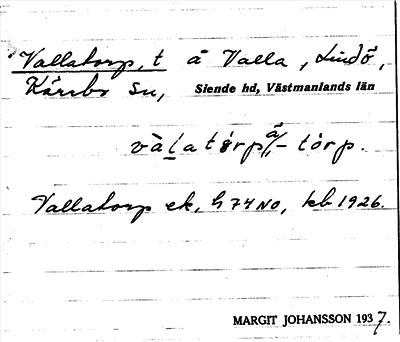 Vallatorp, t å Valla, Lindö,
Kärrbo sn, Siende hd, Västmanlands län
và l̠a tòrp å/- tòrp.
Vallatorp ek, h 74 NO, kb 1926.
MARGIT JOHANSSON 1937.